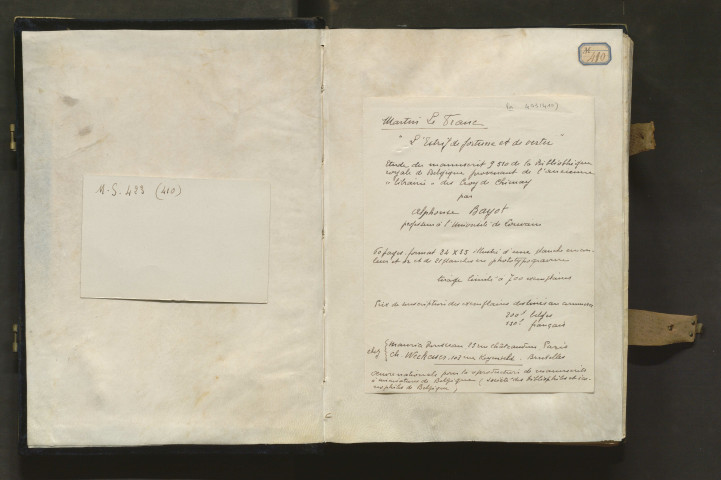 M.S. 423 (410)
M
410
423 (410)
Martin Le Franc
" L'Estrif de fortune et de vertu "
Etude du manuscrit 9510 de la Bibliothèque
royale de Belgique provenant de l'ancienne
" librairie " des Croy de Chimay
par
Alphonse Bayot
professeur à l'Université de Louvain
pages format 24 x 33 illustré d'une planche en
et de 21 planches en phototypogravure
tirage limité à 700 exemplaires
Prix de souscription des exemplaires
200f belges
130f français
chez { Maurice Rousseau rue Châteaudun Paris
Ch. Weckesser, 103 rue Royale Bruxelles
Oeuvre nationale pour la reproduction de manuscrits
à miniatures de Belgique (Société des bibliophiles et
de Belgique)